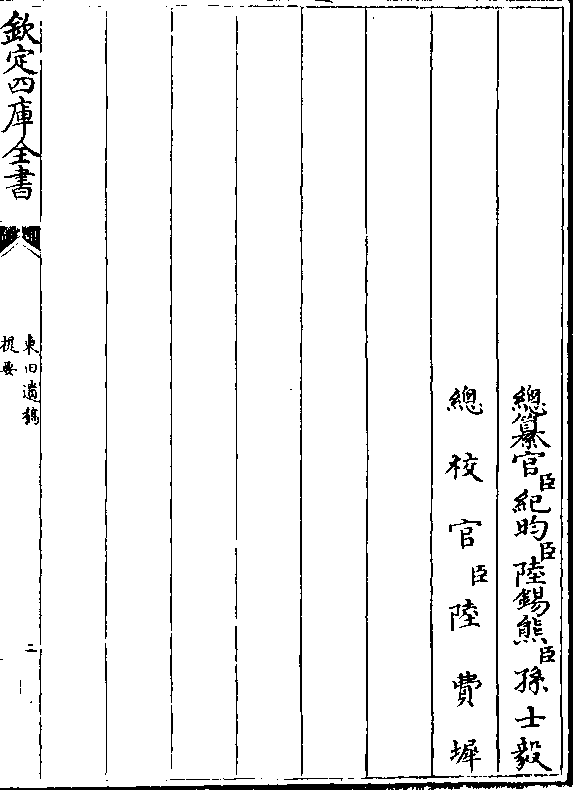 總纂官臣紀昀臣陸錫熊臣孫士毅
總校官臣陸費墀
欽定四庫全書
東田遺稿
提要
二